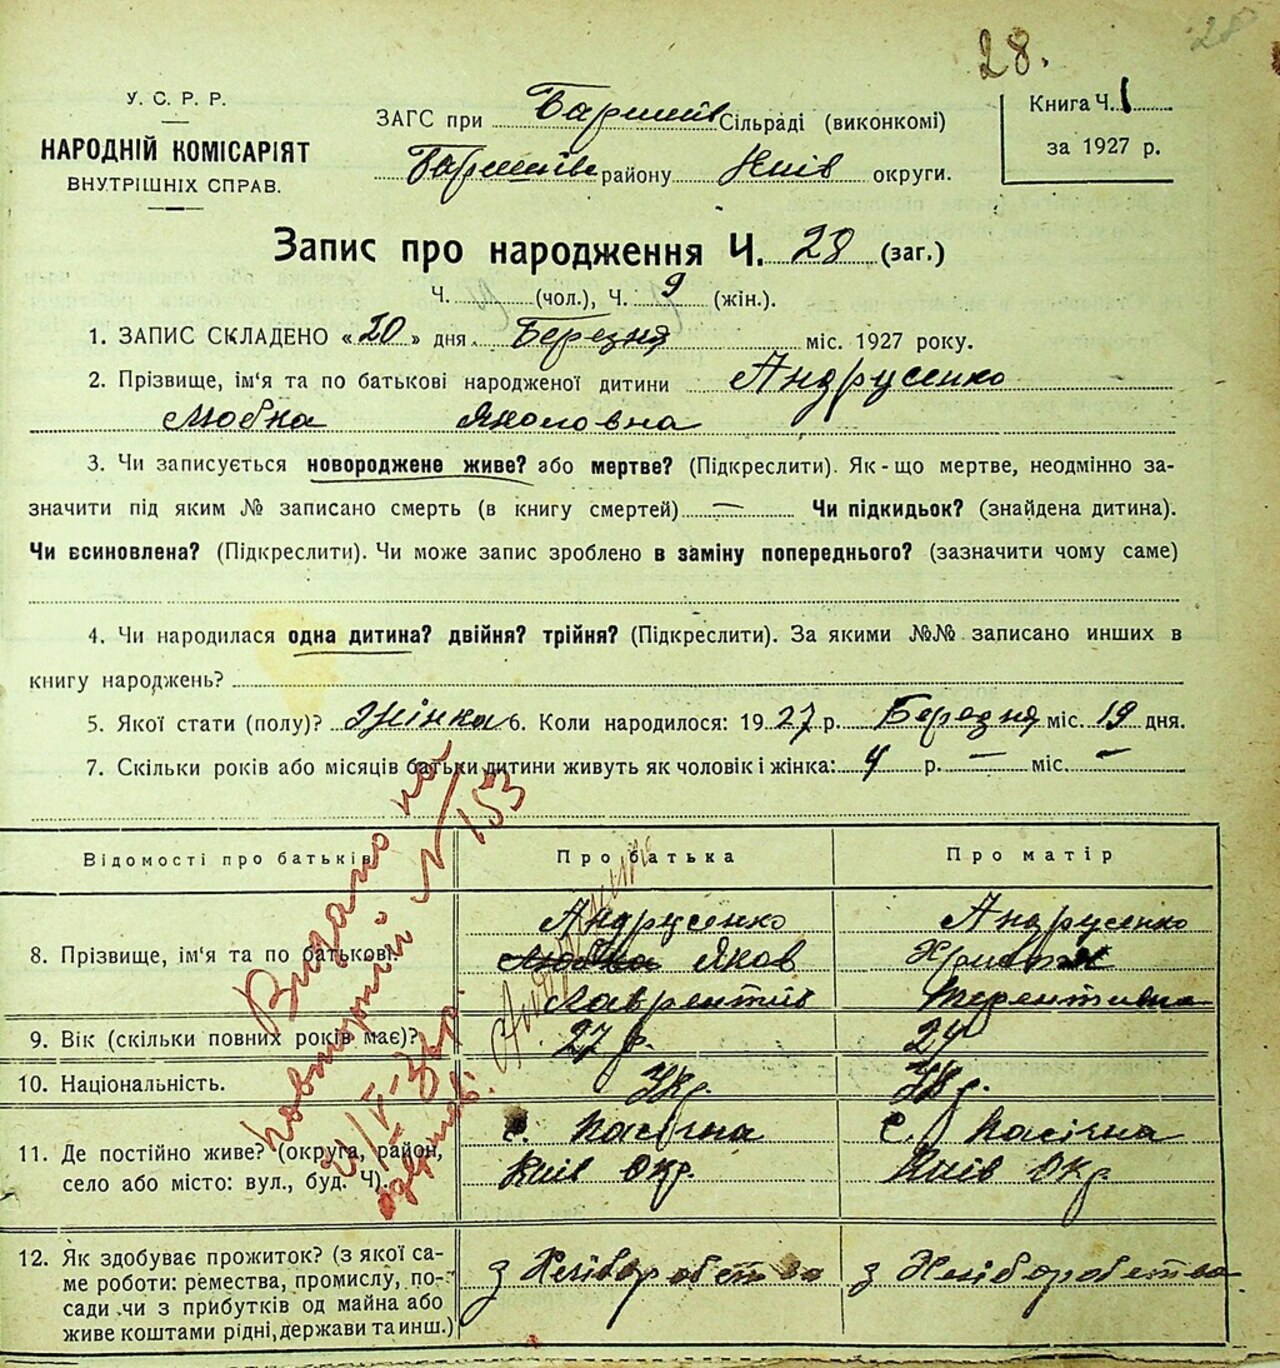 28.
28
У. С. Р. Р.
НАРОДНІЙ КОМІСАРІЯТ
ВНУТРІШНІХ СПРАВ.
ЗАГС при Баришів Сільраді (виконкомі)
Баришівс району Київ округи.
Книга Ч. 1
за 1927 р.
Запис про народження Ч. 28 (заг.)
Ч. (чол.), Ч. 9 (жін.).
1. ЗАПИС СКЛАДЕНО «20» дня Березня міс. 1927 року.
2. Прізвище, ім‘я та по батькові народженої дитини Андрусенко
Любка Якововна
3. Чи записується новороджене живе? або мертве? (Підкреслити). Як-що мертве, неодмінно за-
значити під яким № записано смерть (в книгу смертей) — Чи підкидьок? (знайдена дитина).
Чи всиновлена? (Підкреслити). Чи може запис зроблено в заміну попереднього? (зазначити чому саме)
4. Чи народилася одна дитина? двійня? трійня? (Підкреслити). За якими №№ записано инших в
книгу народжень?
5. Якої стати (полу)? Жінка 6. Коли народилося: 1927 р. Березня міс. 19 дня.
7. Скільки років або місяців батьки дитини живуть як чоловік і жінка: 4 р. — міс. —
Видано по
повторний N 153
Відомості про батьків Про батька Про матір
8. Прізвище, ім‘я та по батькові.
Андрусенко
Любка Яков
Лаврентіїв
Андрусенко
Терентивна
9. Вік (скільки повних років має)? 27 р. 24
10. Національність. Укр. Укр.
11. Де постійно живе? (округа, район,
село або місто: вул., буд. Ч).
с. Пасічна
Київ Окр.
с. Пасічна
Київ Окр.
12. Як здобуває прожиток? (з якої са-
ме роботи: ремества, промислу, по-
сади чи з прибутків од майна або
живе коштами рідні, держави та инш.)
з Хліборобства
з Хліборобства